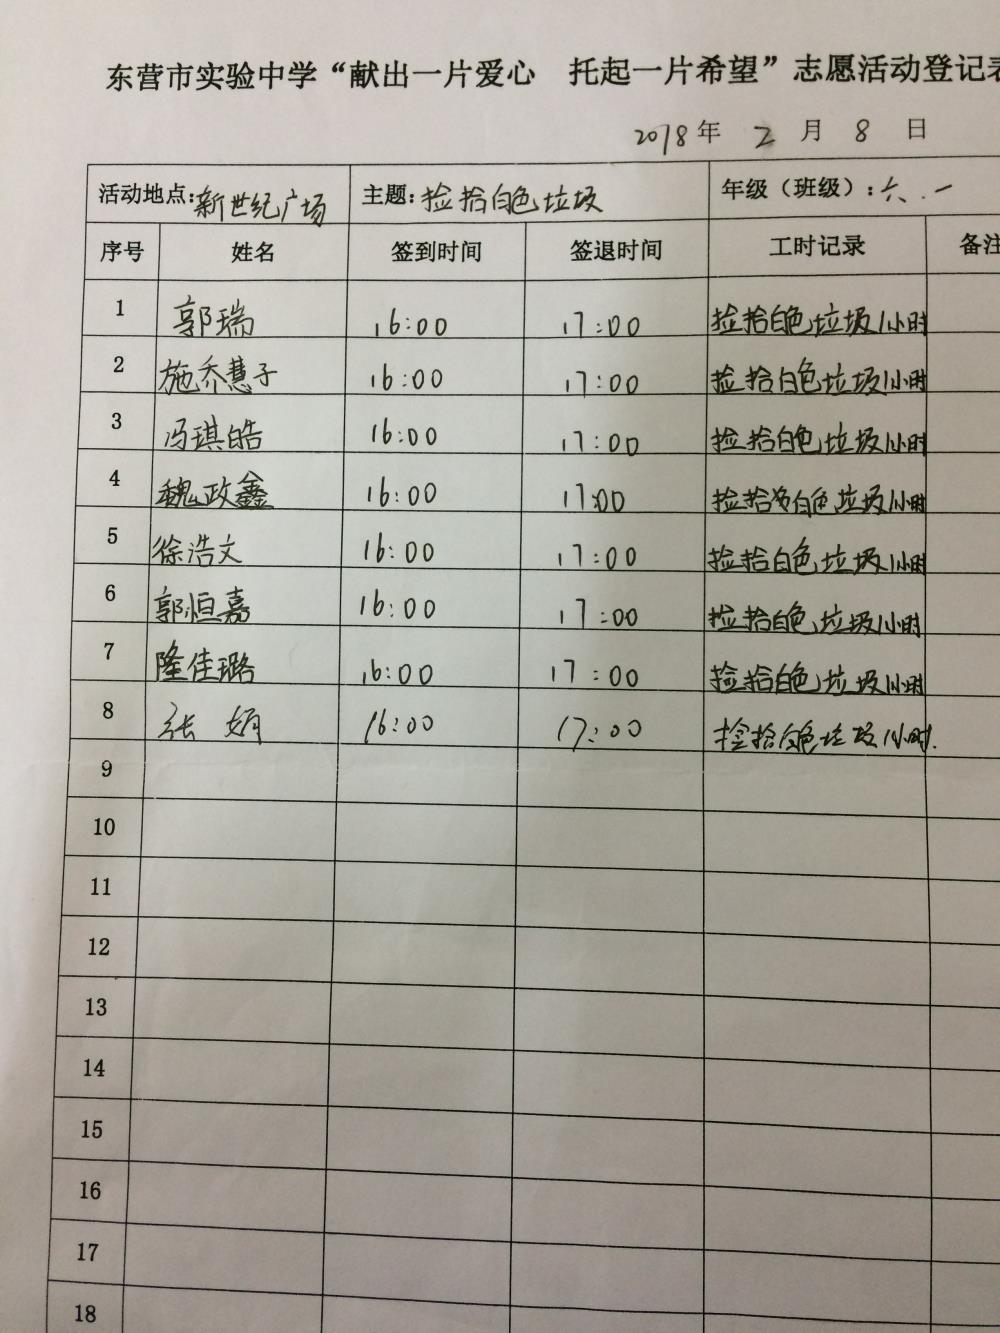 东营市实验中学“献出一片爱心 托起一片希望”志愿活动登记表
2018年 2 月 8 日
活动地点:新世纪广场 主题:捡拾白色垃圾 年级（班级）:六.一
序号 姓名 签到时间 签退时间 工时记录 备注
1 郭瑞 16:00 17:00 捡拾白色垃圾1小时
2 施乔慧子 16:00 17:00 捡拾白色垃圾1小时
3 冯琪皓 16:00 17:00 捡拾白色垃圾1小时
4 魏政鑫 16:00 17:00 捡拾白色垃圾1小时
5 徐浩文 16:00 17:00 捡拾白色垃圾1小时
6 郭恒嘉 16:00 17:00 捡拾白色垃圾1小时
7 隆佳璐 16:00 17:00 捡拾白色垃圾1小时
8 张娟 16:00 17:00 捡拾白色垃圾1小时.
9
10
11
12
13
14
15
16
17
18